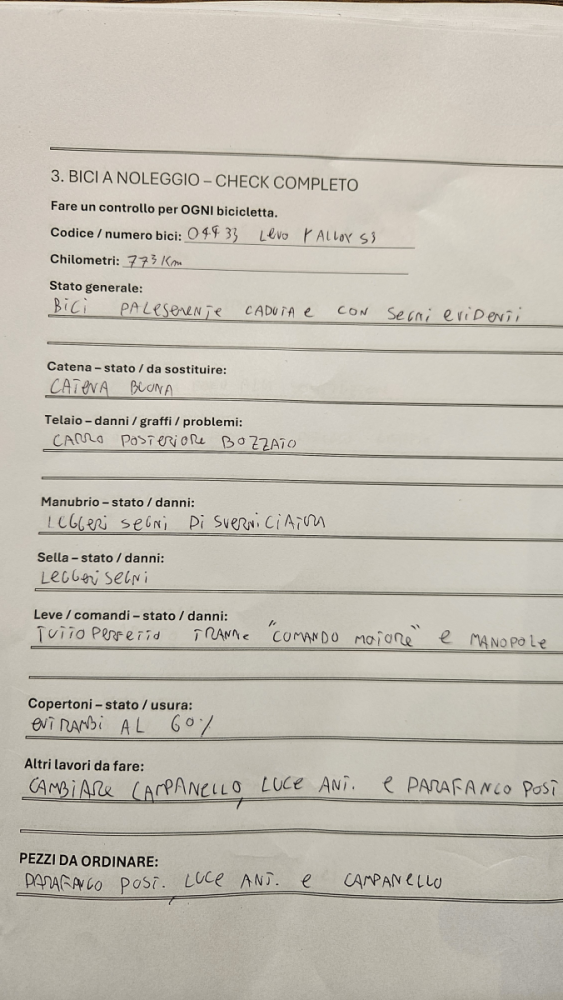 3. BICI A NOLEGGIO – CHECK COMPLETO
Fare un controllo per OGNI bicicletta.
Codice / numero bici: 04433 Levo ALLOY
Chilometri: 773 Km
Stato generale:
BICI PALESEMENTE CADUTA e CON SEGNI EVIDENTI
Catena – stato / da sostituire:
CATENA BUONA
Telaio – danni / graffi / problemi:
CARRO POSTERIORE BOZZATO
Manubrio – stato / danni:
LEGGERI SEGNI DI SVERNICIATURA
Sella – stato / danni:
LEGGERI SEGNI
Leve / comandi – stato / danni:
TUTTO PERFETTO TRANNE "COMANDO MOTORE" e MANOPOLE
Copertoni – stato / usura:
ENTRAMBI AL 60%
Altri lavori da fare:
CAMBIARE CAMPANELLO, LUCE ANT. e PARAFANGO POST
PEZZI DA ORDINARE:
PARAFANGO POST. LUCE ANT. e CAMPANELLO